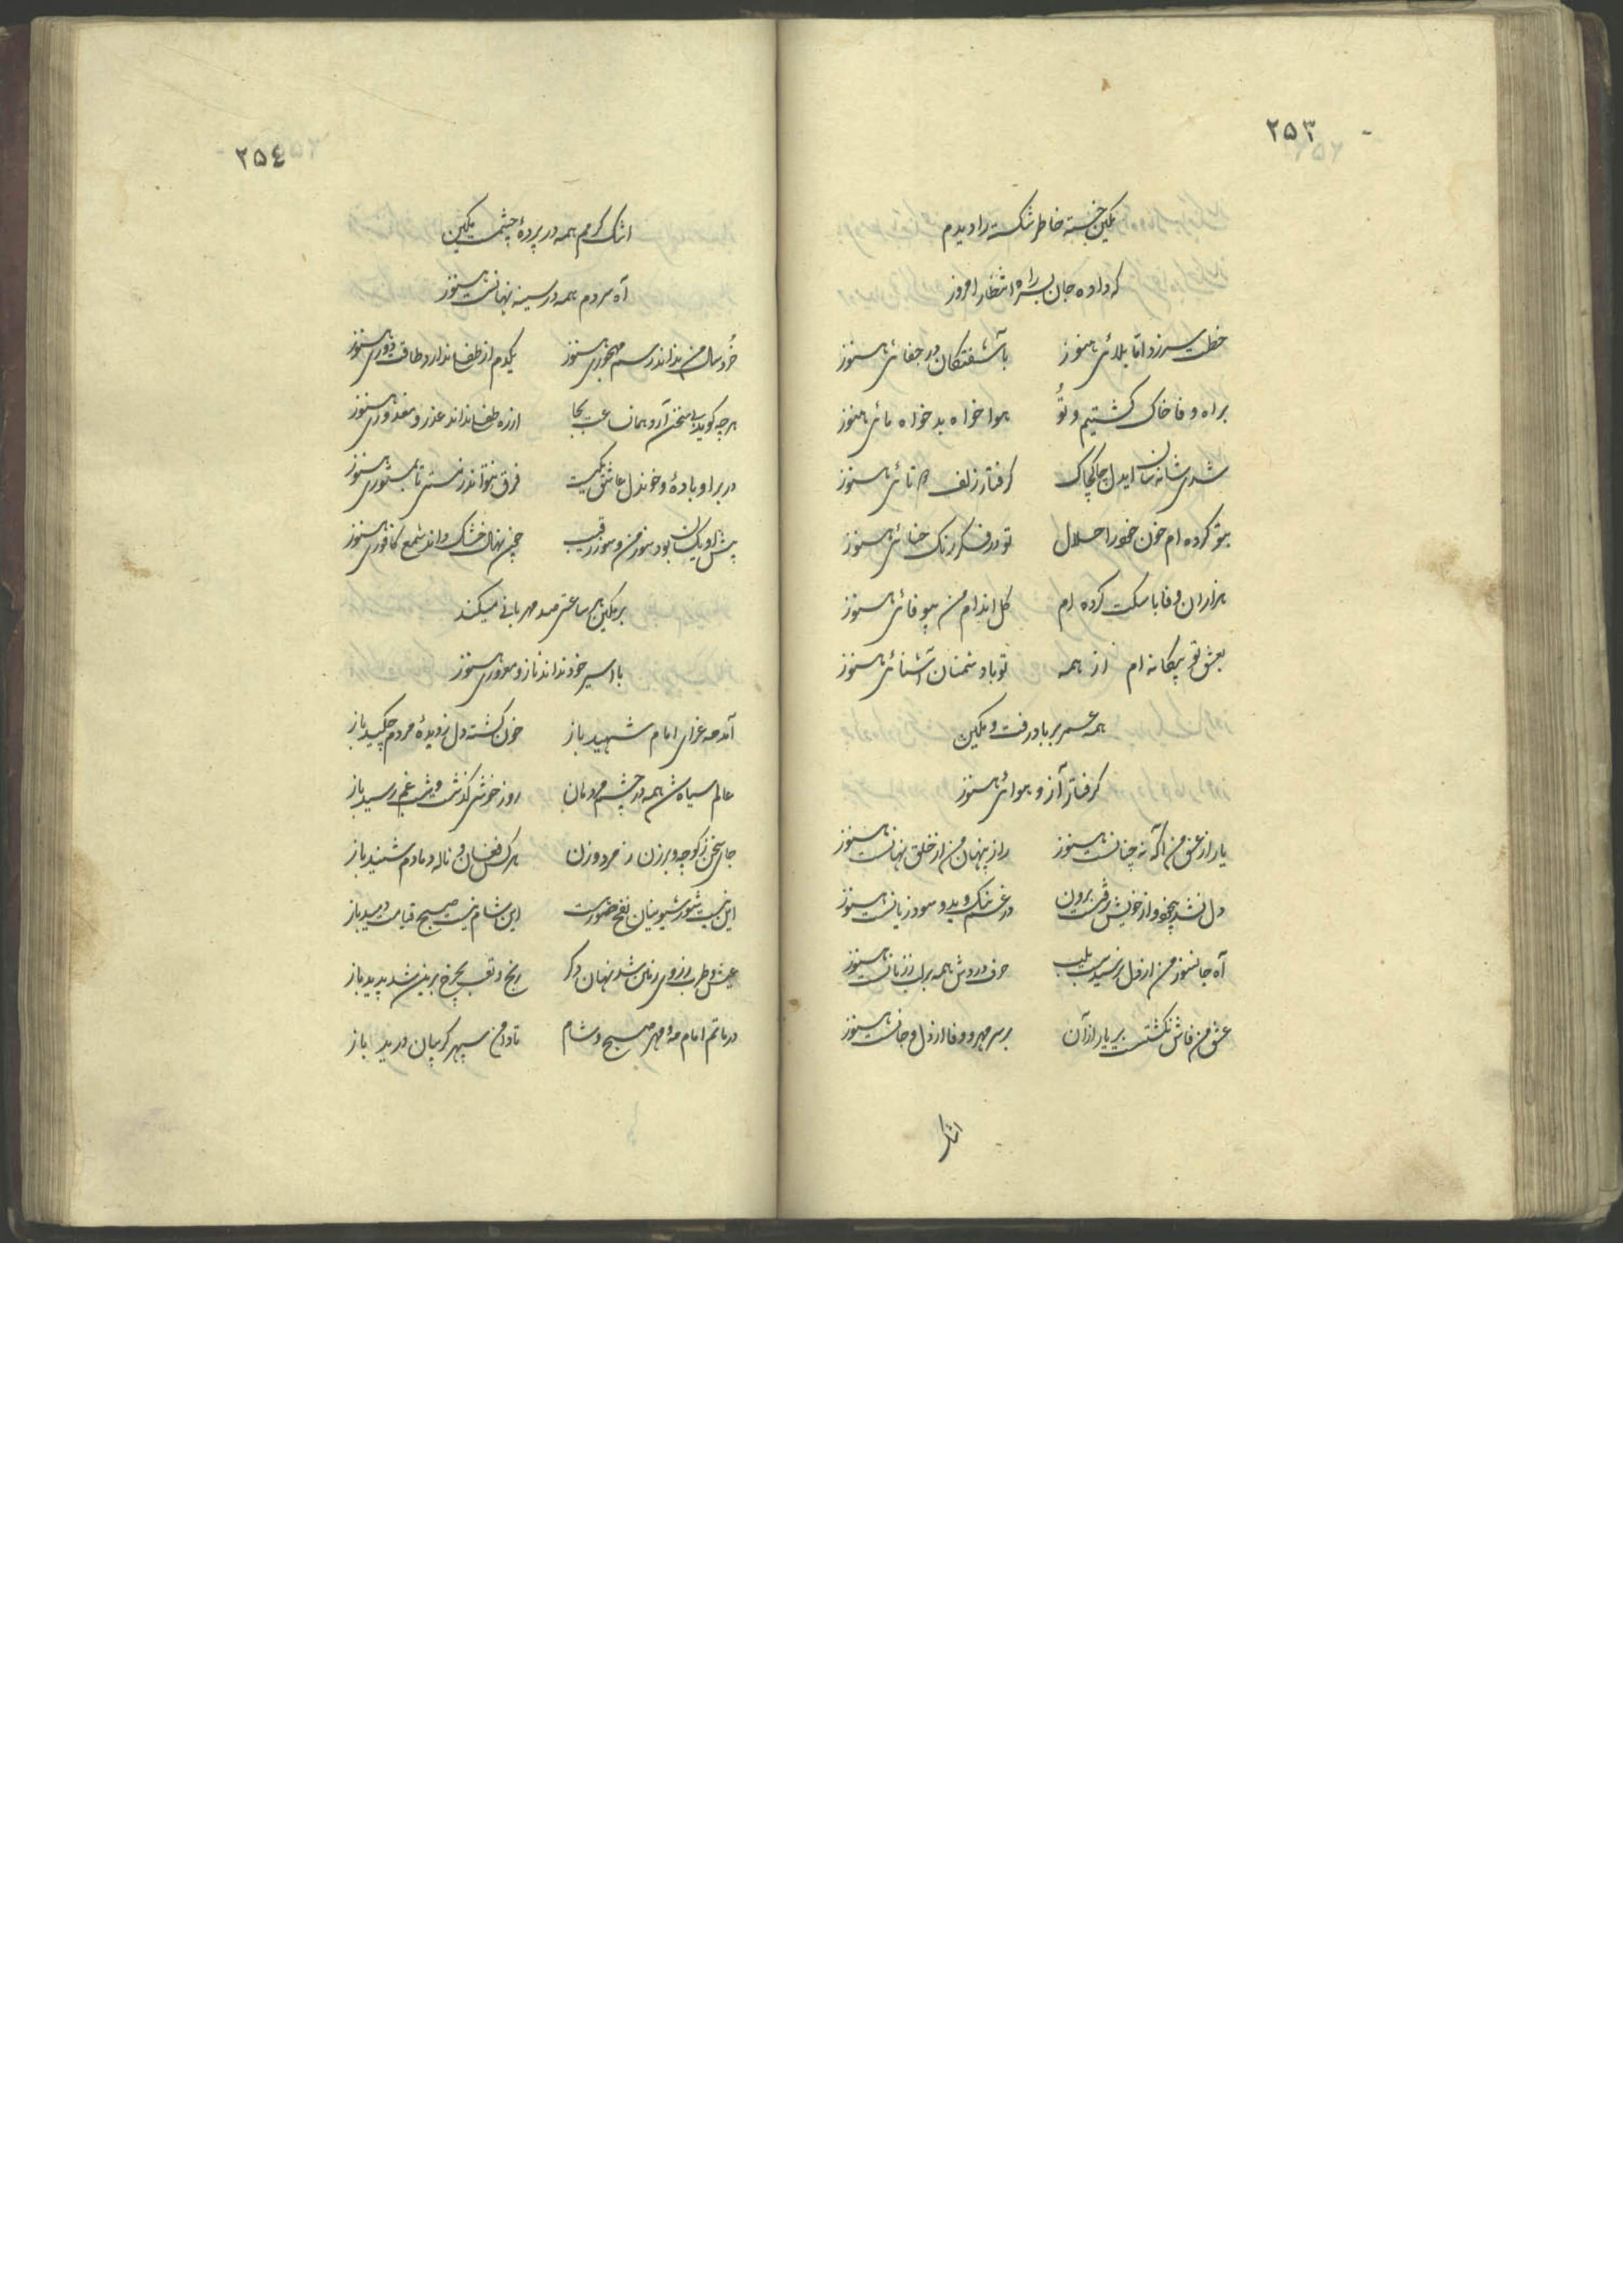 ٢٥٣
تمکین خسته خاطر شکسته را دیدم
که داده جان بسر راه انتظار امروز
خطت سرزد اما بلائی هنوز باشفتگان در جفائی هنوز
براه وفا خاک گشتیم و تو هوا خواه بد خواه مائی هنوز
شدی شانه سان ایدل چاکچاک گرفتار زلف دوتائی هنوز
بتو کرده ام خون خود را حلال تو در فکر رنگ حنائی هنوز
هزاران وفا با سکت کرده ام گل اندام من بیوفائی هنوز
بعشق تو بیگانه ام از همه تو با دشمنان آشنائی هنوز
همه عمر بر باد رفت و تمکین
گرفتار آز و هوائی هنوز
یار از عشق من آگه نه چنانست هنوز راز پنهان من از خلق نهانست هنوز
دل نشد بیخود و از خویش نرفت برون در غم نیک و بد و سود و زیانست هنوز
آه جانسوز من از دل نرسیدست بلب حرف دردش همه بر لب ز زبانست هنوز
عشق من فاش نگشتست بر یار از آن بر سر مهر و وفا از دل و جانست هنوز
اشک
٢٥٤
اشک گرمم همه در پردهٔ چشمست تمکین
آه سردم همه در سینه نهانست هنوز
خُردسال من نداند رسم مهجوری هنوز یکدم از طفلی ندارد طاقت دوری هنوز
هر چه گوید بی سخن آرد همان عیب بجا از ره طفلی نداند عذر و معذوری هنوز
در بر او باده و خوندل عاشق یکیست فرق نتواند ز مستی تا بمستوری هنوز
پیش او یکسان بود سوز من و سوز رقیب چون نهال خشک داند شمع کافوری هنوز
بر تمکین هر ساعتی صد مهربانی میکند
با اسیر خود نداند ناز و مغروری هنوز
آمد مه عزای امام شهید باز خون گشته دل ز دیدهٔ مردم چکید باز
عالم سیاه شد همه در چشم مردمان روز خوشی گذشت و شب غم رسید باز
جای سخن ز کوچه و برزن ز مرد و زن هر کس فغان و ناله دمادم شنید باز
این نیست شور شیونیان نفخ صورست این شام نیست صبح قیامت دمید باز
عیش و طرب ز روی زمان شد نهان دگر رنج و تعب بچرخ برین شد پدید باز
در ماتم امام مه و مهر صبح و شام تا دامن سپهر گریبان درید باز